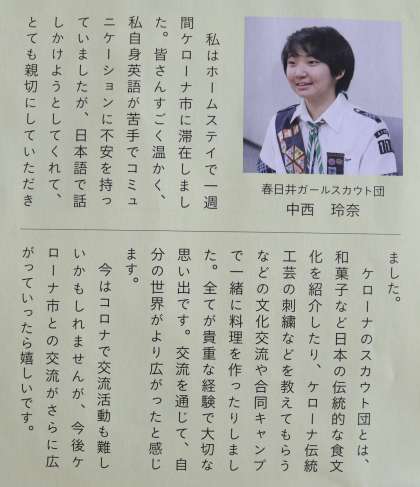 春日井ガールスカウト団
中西　玲奈
　私はホームステイで一週
間ケローナ市に滞在しまし
た。皆さんすごく温かく、
私自身英語が苦手でコミュ
ニケーションに不安を持っ
ていましたが、日本語で話
しかけようとしてくれて、
とても親切にしていただき
ました。
　ケローナのスカウト団とは、
和菓子など日本の伝統的な食文
化を紹介したり、ケローナ伝統
工芸の刺繍などを教えてもらう
などの文化交流や合同キャンプ
で一緒に料理を作ったりしまし
た。全てが貴重な経験で大切な
思い出です。交流を通じて、自
分の世界がより広がったと感じ
ます。
　今はコロナで交流活動も難し
いかもしれませんが、今後ケ
ローナ市との交流がさらに広
がっていったら嬉しいです。